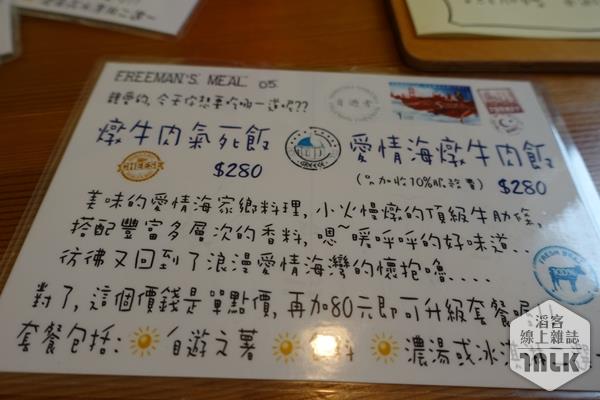 FREEMAN'S MEAL 05.
親愛的,今天你想要吃哪一道呢??
自遊者
燉牛肉氣死飯
愛情海燉牛肉飯
$280
(需加收10%服務費) $280
美味的愛情海家鄉料理,小火慢燉的頂級牛肋條,
搭配豐富多層次的香料,嗯~暖呼呼的好味道..
彷彿又回到了浪漫愛情海灣的懷抱嚕....
對了,這個價錢是單點價,再加80元即可升級套餐喔
套餐包括: 自遊之薯 濃湯或冰淇
滔客
線上雜誌
TALK